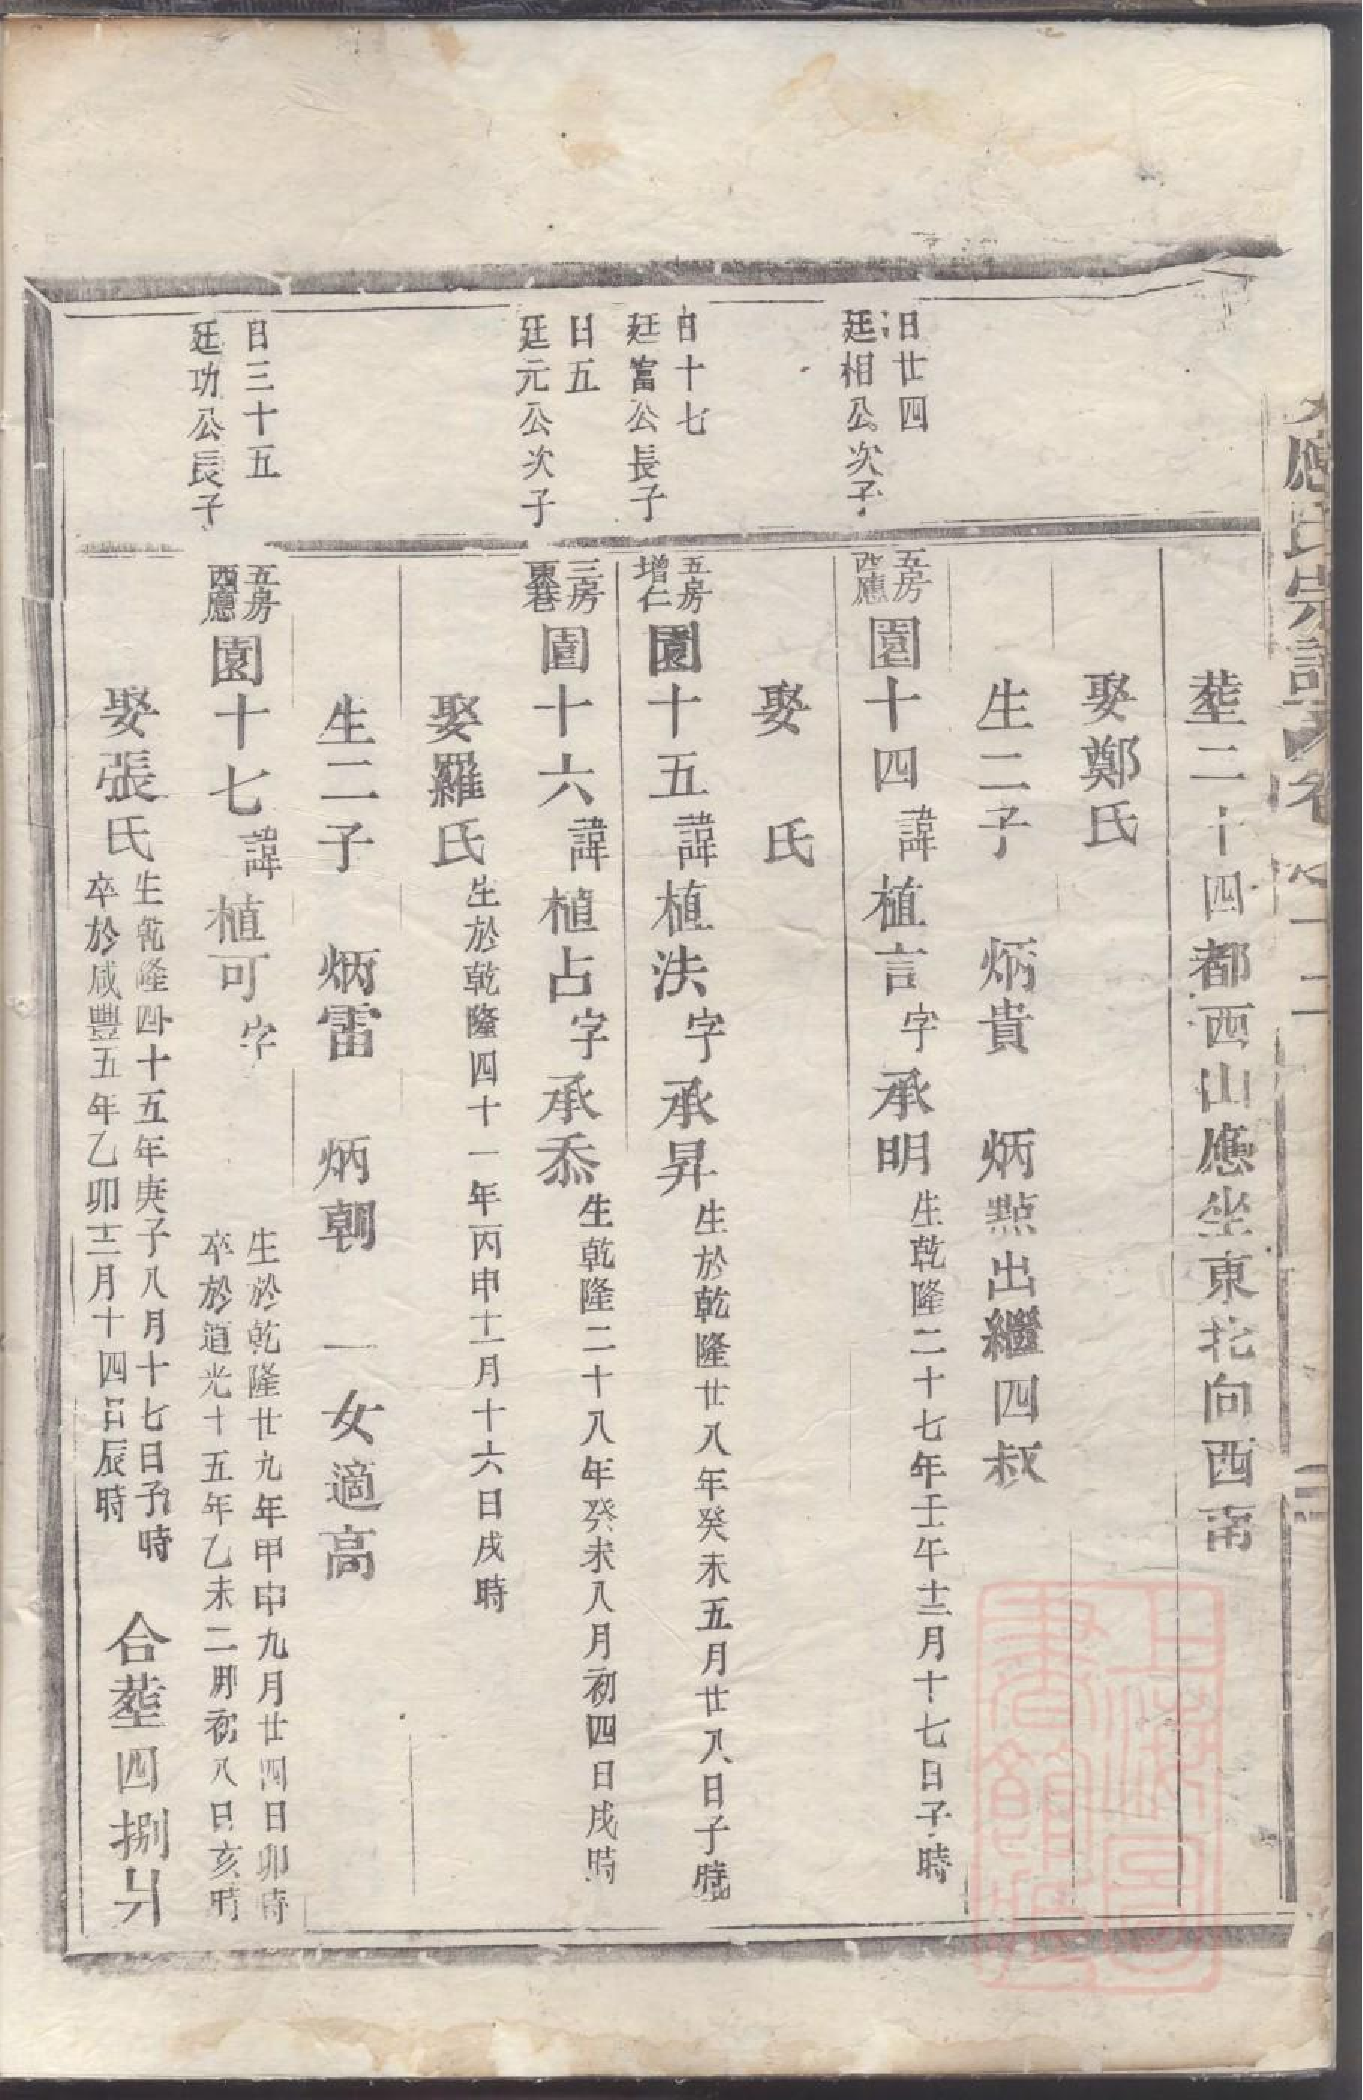 應氏宗譜
葬二十四都西山應坐東北向西南
娶鄭氏
生二子 炳貴 炳點出繼四叔
日廿四
廷相公次子
五房
西應
園十四諱植言字承明生乾隆二十七年壬午十二月十七日子時
娶 氏
日十七
廷富公長子
五房
增仁
園十五諱植法字承昇生於乾隆廿八年癸未五月廿八日子時
日五
廷元公次子
三房
東巷
園十六諱植占字承忝生乾隆二十八年癸未八月初四日戌時
娶羅氏生於乾隆四十一年丙申十一月十六日戌時
生二子 炳雷 炳朝 一女適高
日三十五
廷功公長子
五房
西應
園十七諱植可字
生於乾隆廿九年甲申九月廿四日卯時
卒於道光十五年乙未二月初八日亥時
娶張氏
生乾隆四十五年庚子八月十七日子時
卒於咸豐五年乙卯十二月十四日辰時
合葬四捌爿